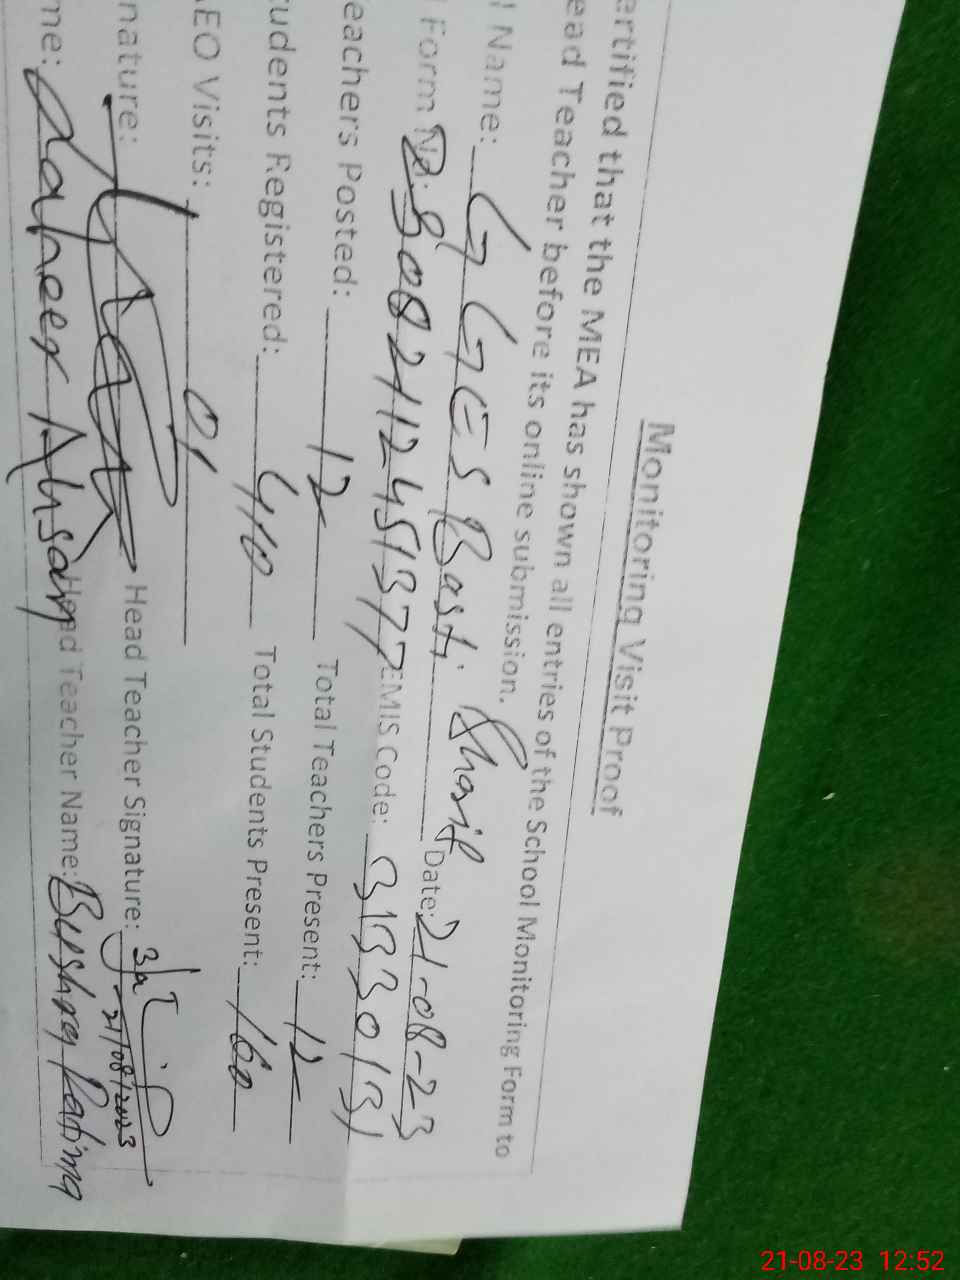 Monitoring Visit Proof
ertified that the MEA has shown all entries of the School Monitoring Form to
ead Teacher before its online submission.
l Name: GGES Basti Sharif Date: 21-08-23
Form No: 2112451377 EMIS Code: 31330131
eachers Posted: 12 Total Teachers Present: 12
tudents Registered: 410 Total Students Present: 160
AEO Visits: 01
nature: Head Teacher Signature: 21/08/2023
me: Zaheer Ahsan Head Teacher Name: Bushra Fatima
21-08-23 12:52